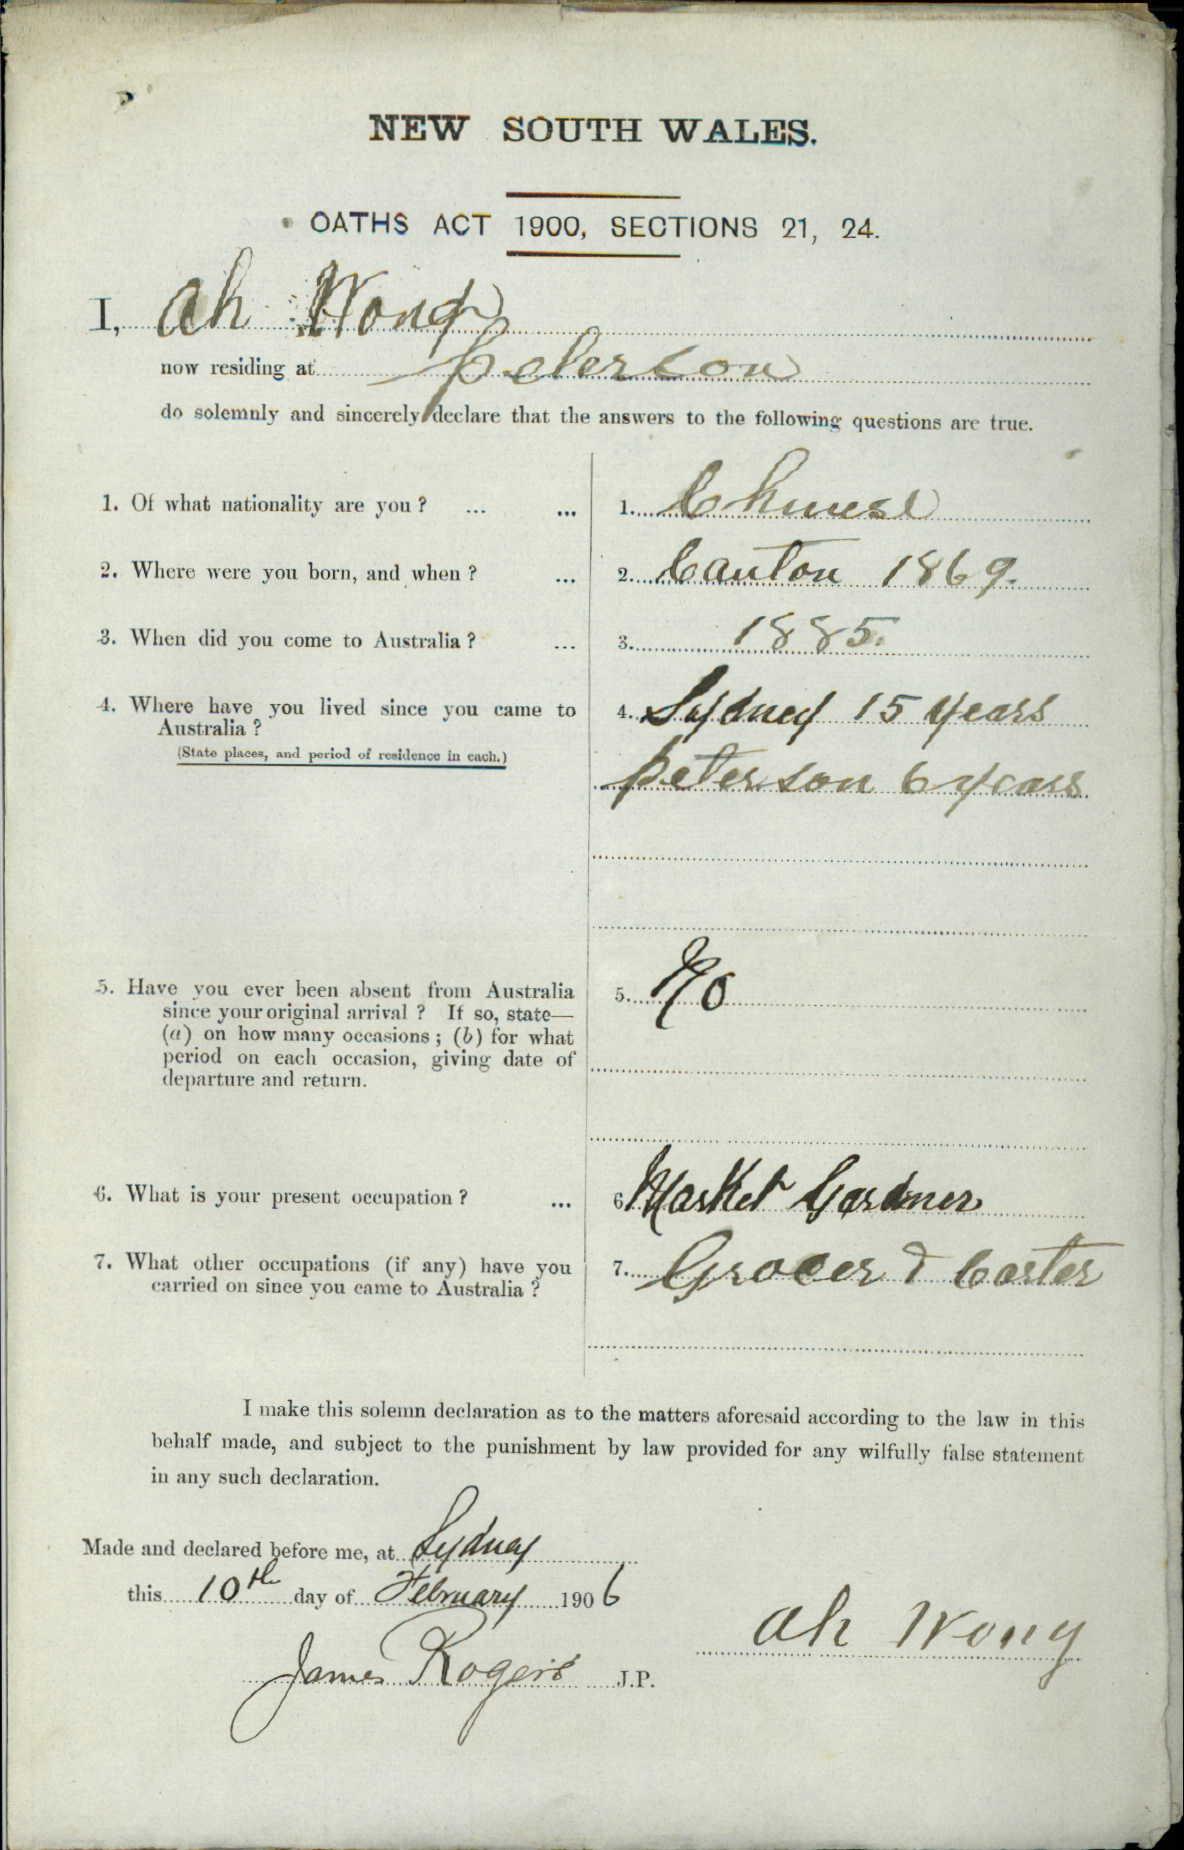 NEW SOUTH WALES.
OATHS ACT 1900, SECTIONS 21, 24.
I, Ah Wong
now residing at Peterson
do solemnly and sincerely declare that the answers to the following questions are true.
1. Of what nationality are you? ... ... 1. Chinese
2. Where were you born, and when? ... 2. Canton 1869.
3. When did you come to Australia? ... 3. 1885.
4. Where have you lived since you came to 4. Sydney 15 years
Australia?
(State places, and period of residence in each.)
Peterson 6 years
5. Have you ever been absent from Australia 5. No
since your original arrival? If so, state—
(a) on how many occasions; (b) for what
period on each occasion, giving date of
departure and return.
6. What is your present occupation? ... 6. Market Gardner
7. What other occupations (if any) have you 7. Grocer & Carter
carried on since you came to Australia?
I make this solemn declaration as to the matters aforesaid according to the law in this
behalf made, and subject to the punishment by law provided for any wilfully false statement
in any such declaration.
Made and declared before me, at Sydney
this 10th day of February 1906
Ah Wong
James Rogers J.P.